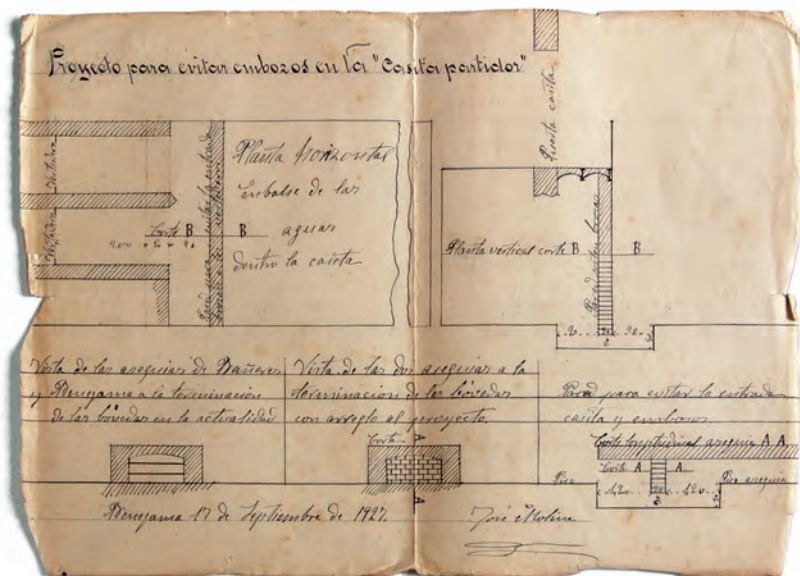 Proyecto para evitar embozos en la "Casita partidor"
Planta horizontal
Embalse de las
aguas
dentro la caseta
Corte B B
Puerta casita
Planta vertical corte B B
Vista de las asequias de Bañeres
y Benejama a la terminación
de las bóvedas en la actualidad
Vista de las dos asequias a la
terminacion de las bóvedas
con arreglo al proyecto.
Pared para evitar la entrada
casita y embozos.
Corte longitudinal asequia A A.
Corte A
A
Corte A A
Piso
Piso asequia
1,20 1,20
Benejama 17 de Septiembre de 1927.
José Molina